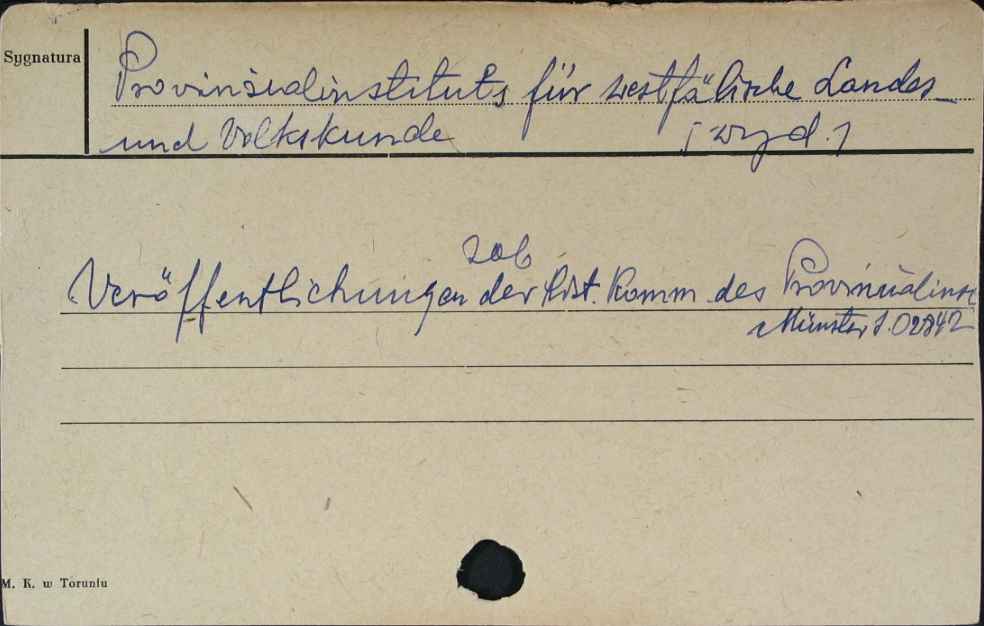 Sygnatura
Provinzialinstituts für westfälische Landes-
und Volkskunde [wyd.]
zob
Veröffentlichungen der hist. Komm des Provinzialinst
Münster S.02842
M. K. w Toruniu